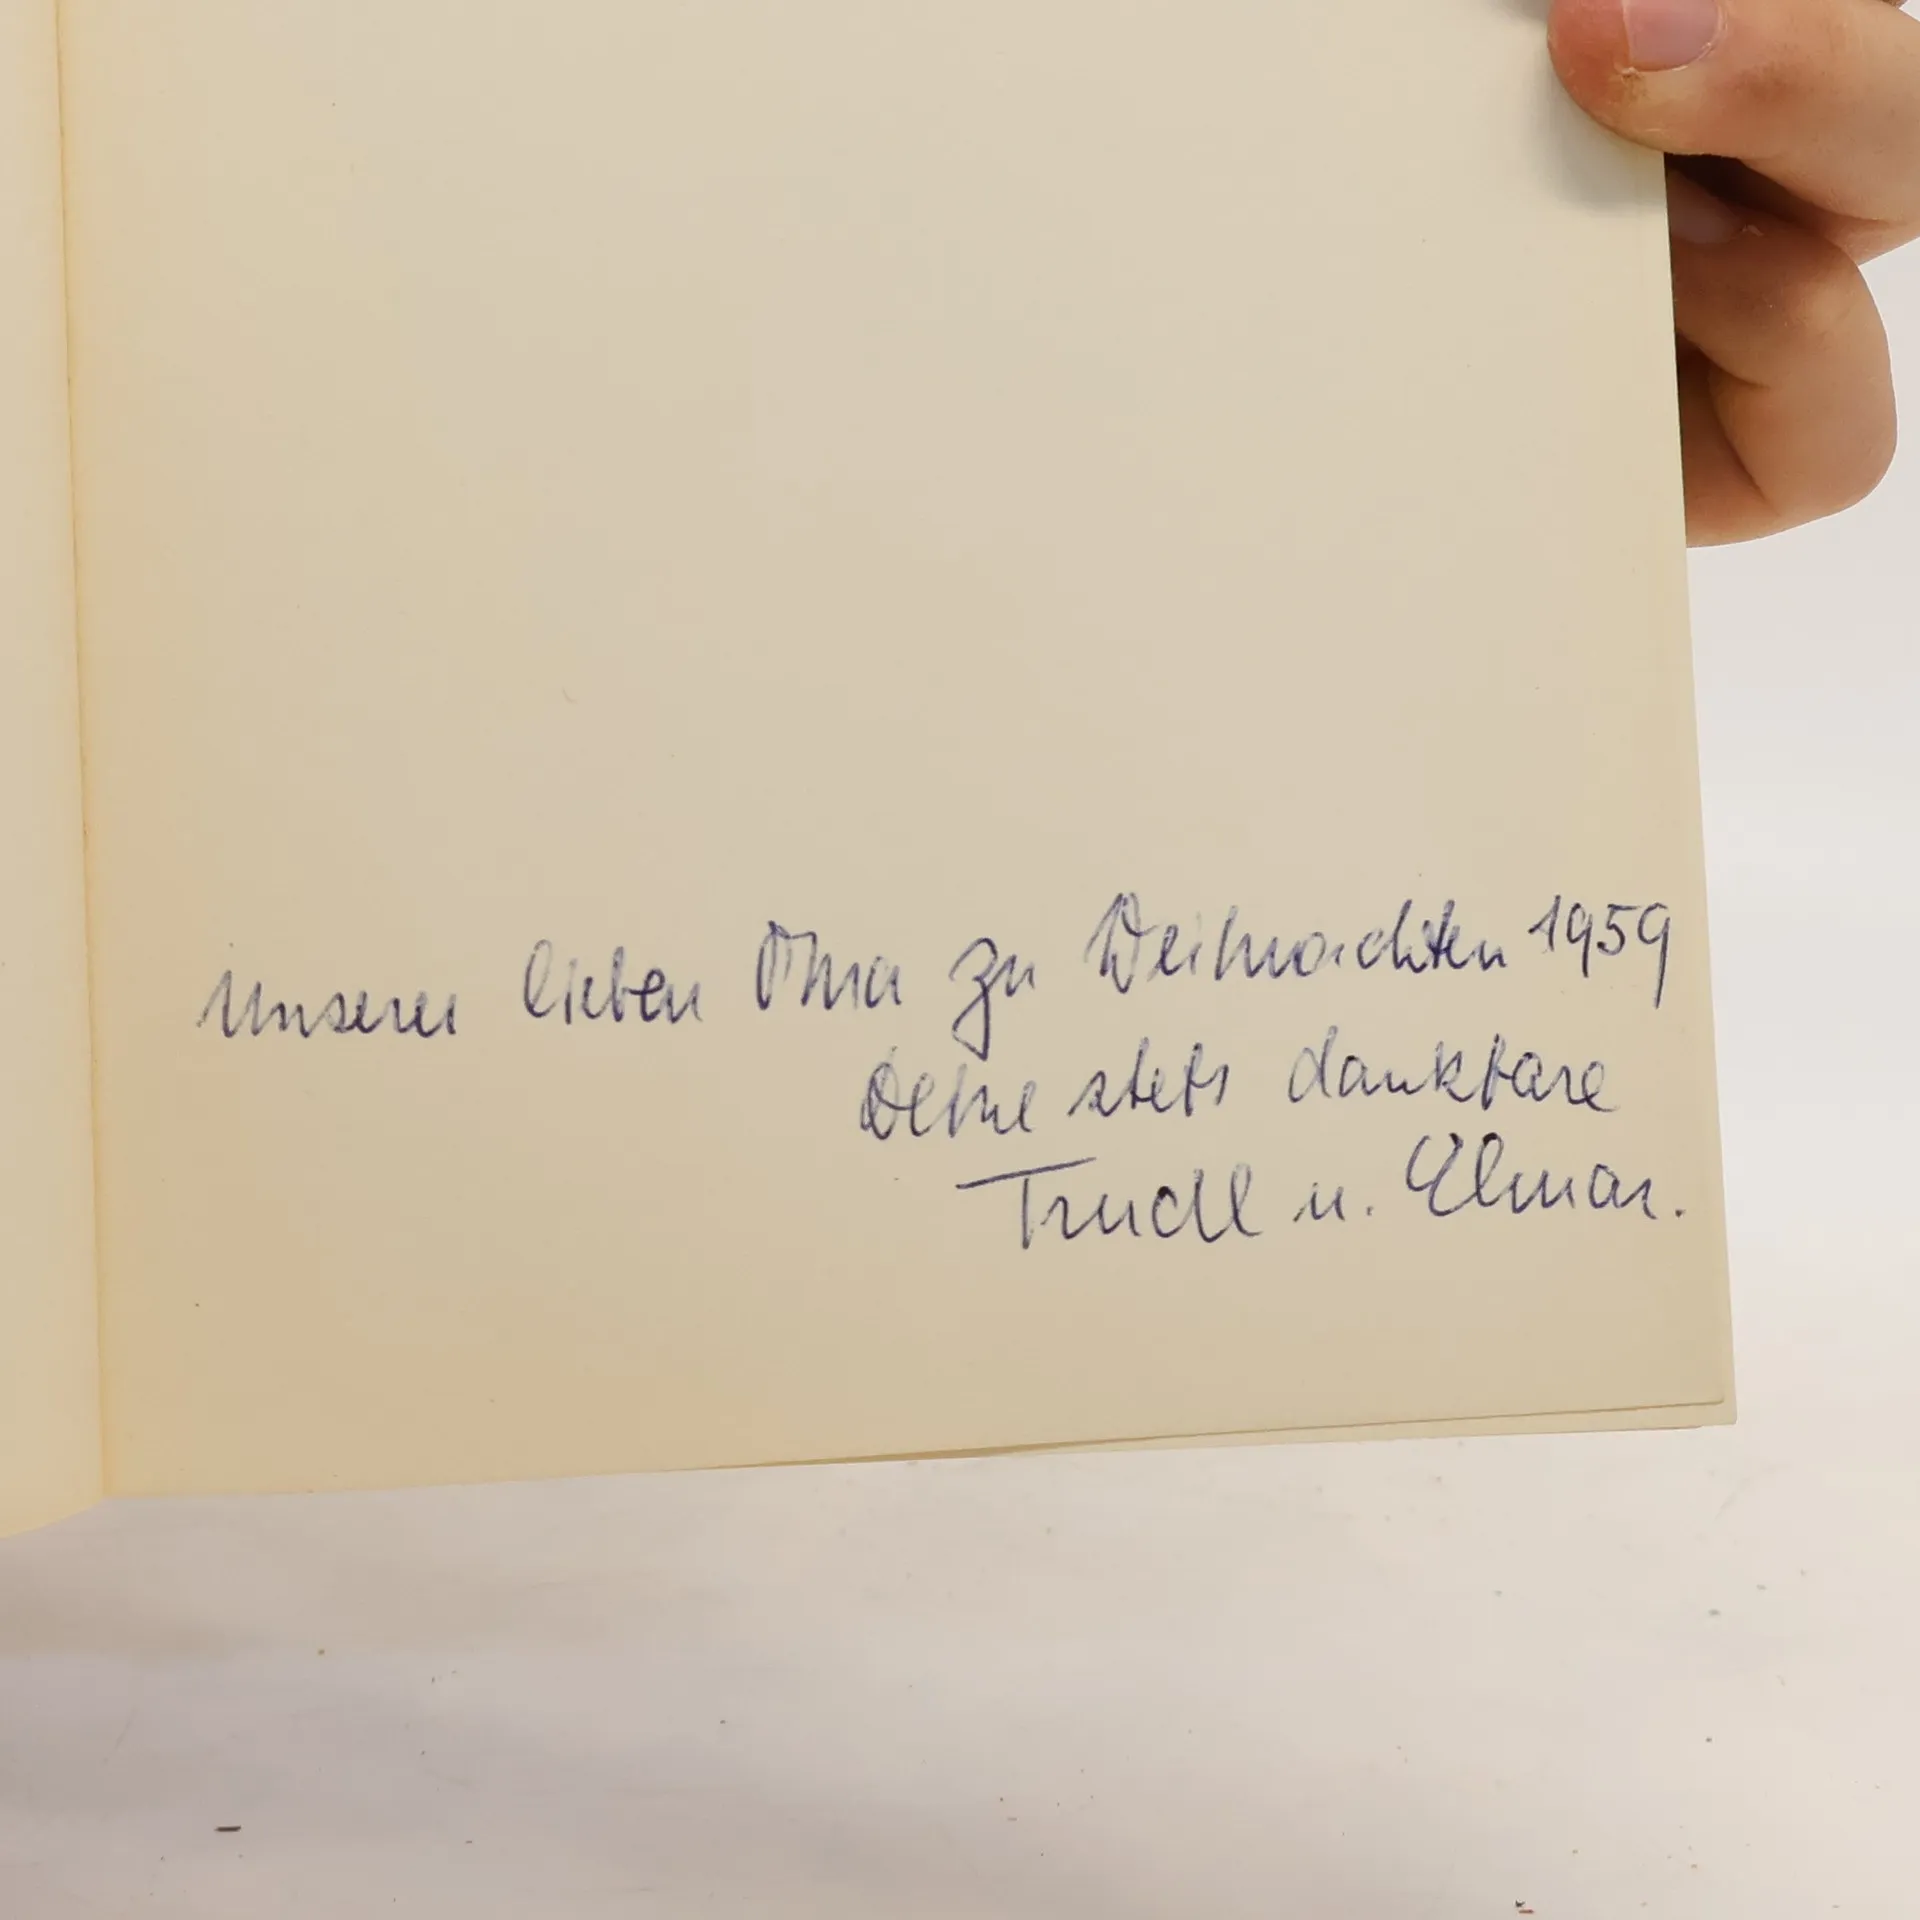 Unserer lieben Oma zu Weihnachten 1959
Deine stets dankbare
Trudl u. Elmar.